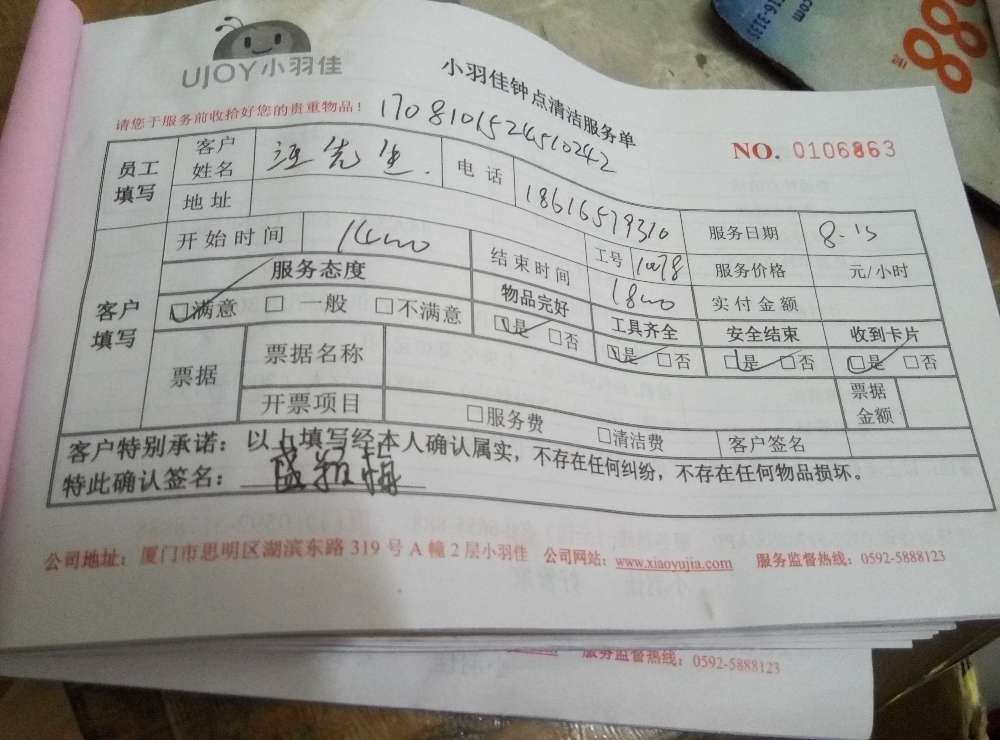 UJOY小羽佳
小羽佳钟点清洁服务单
请您于服务前收拾好您的贵重物品！
17081015245510242
NO. 0106863
员工填写 客户姓名 汪先生. 电话 18616579310 服务日期 8.15
地址 工号 1078 服务价格 元/小时
客户填写 开始时间 1400 结束时间 1800 实付金额
服务态度 物品完好 工具齐全 安全结束 收到卡片
□满意 □一般 □不满意 □是 □否 □是 □否 □是 □否 □是 □否
票据 票据名称 票据金额
开票项目 □服务费 □清洁费 客户签名
客户特别承诺：以上填写经本人确认属实，不存在任何纠纷，不存在任何物品损坏。
特此确认签名：
公司地址：厦门市思明区湖滨东路 319 号 A 幢 2 层小羽佳 公司网站：www.xiaoyujia.com 服务监督热线：0592-5888123
服务监督热线：0592-5888123